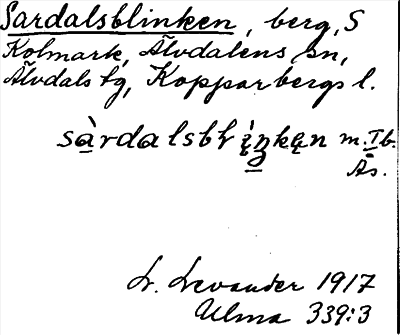 Sardalsblinken, berg, S
Kolmark, Älvdalens sn,
Älvdals tg, Kopparbergs l.
sàrdalsblįŋkęn m. Ib.
Ås.
L. Levander 1917
Ulma 339:3